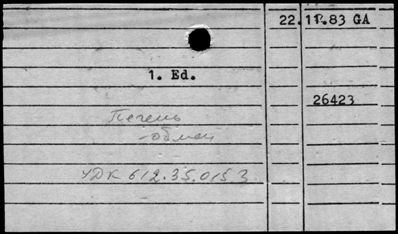 22.11.83 GA
1. Ed.
26423
Печень
-обмен
УДК 612.35.015.3